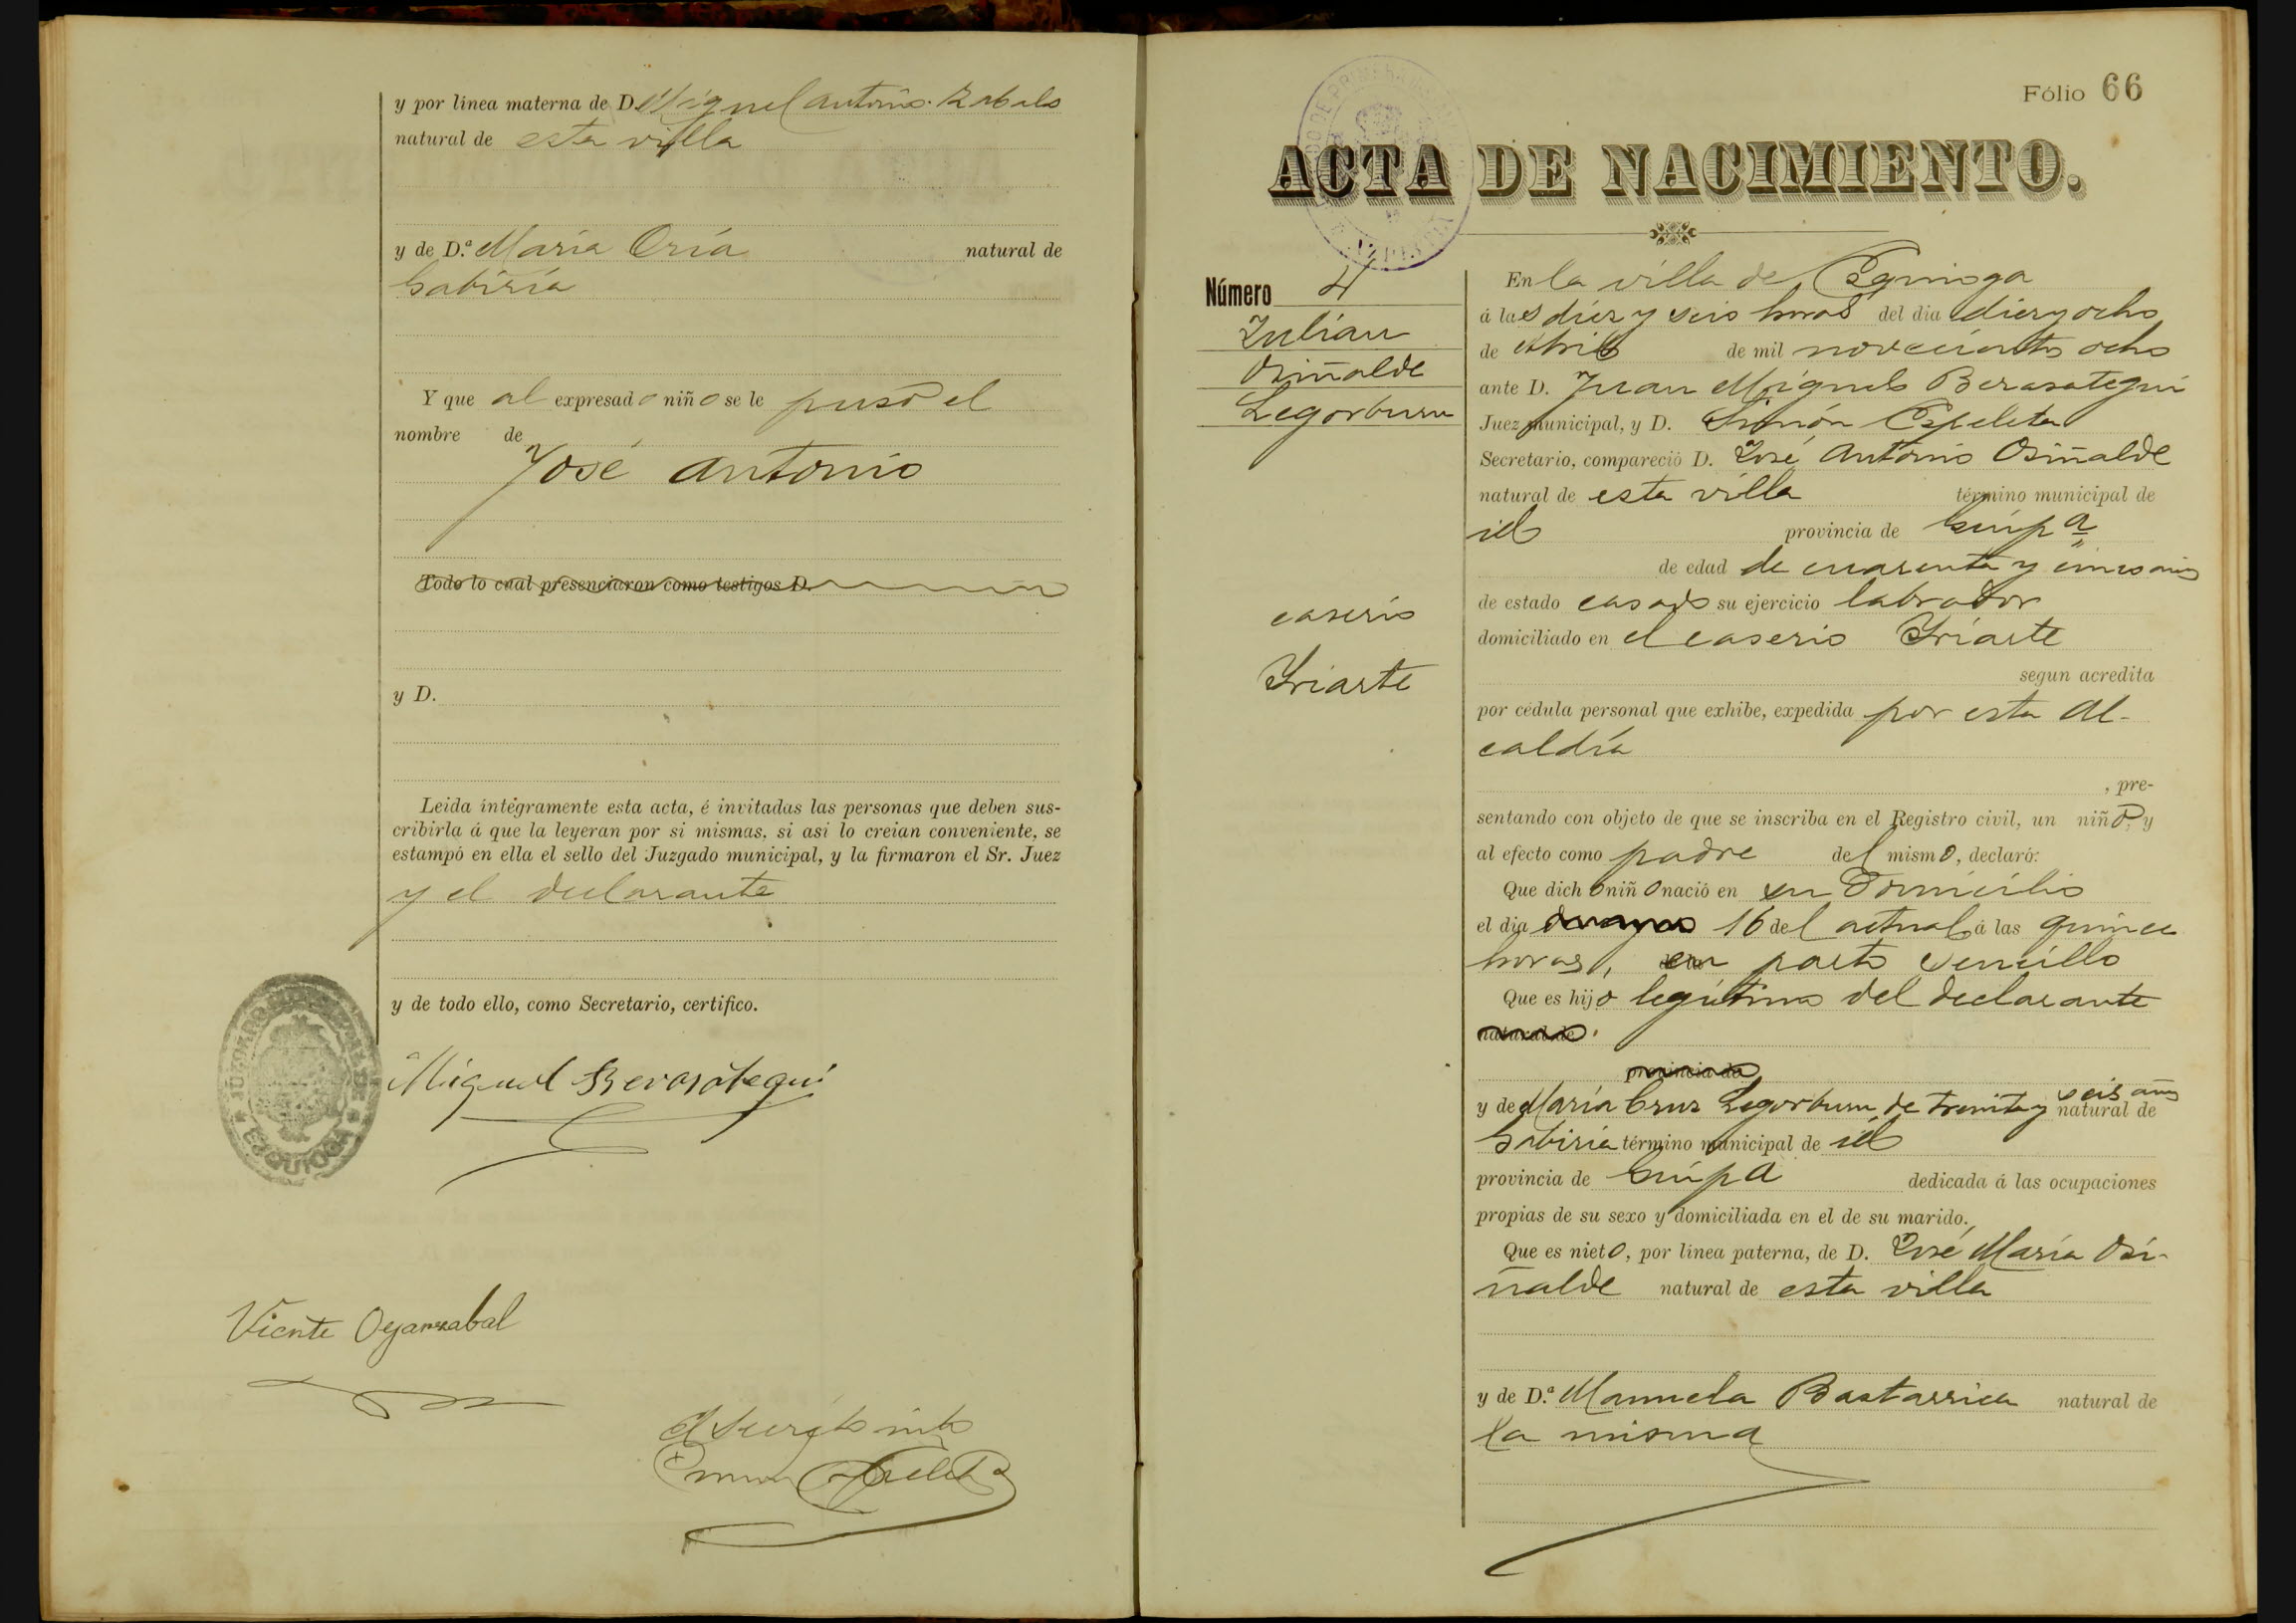 y por línea materna de D. Miguel Antonio Zabalo
natural de esta villa
y de D.ª María Oria natural de
Gabiria
Y que al expresado niño se le puso el
nombre de
José Antonio
Todo lo cual presenciaron como testigos D.
y D.
Leida íntegramente esta acta, é invitadas las personas que deben sus-
cribirla á que la leyeran por si mismas, si asi lo creian conveniente, se
estampó en ella el sello del Juzgado municipal, y la firmaron el Sr. Juez
y el declarante
y de todo ello, como Secretario, certifico.
JUZGADO MUNICIPAL DE
EZQUIOGA
Miguel Berasategui
Vicente Oyarzabal
Fólio 66
ACTA DE NACIMIENTO.
Número 4
Julian
Osiñalde
Legorburu
caserio
Yriarte
En la villa de Ezquioga
á las diez y seis horas del dia diez y ocho
de Abril de mil novecientos ocho
ante D. Juan Miguel Berasategui
Juez municipal, y D. Simón Espeleta
Secretario, compareció D. José Antonio Osiñalde
natural de esta villa término municipal de
id provincia de Guipª
de edad de cuarenta y cinco años
de estado casado su ejercicio labrador
domiciliado en el caserio Yriarte
segun acredita
por cédula personal que exhibe, expedida por esta Al-
caldía
, pre-
sentando con objeto de que se inscriba en el Registro civil, un niño, y
al efecto como padre del mismo, declaró:
Que dicho niño nació en su domicilio
el dia 16 del actual á las quince
horas, en parto sencillo
Que es hijo legítimo del declarante
natural de
provincia de
y de María Cruz Legorburu de treinta y seis años natural de
Gabiria término municipal de id
provincia de Guipª dedicada á las ocupaciones
propias de su sexo y domiciliada en el de su marido.
Que es nieto, por línea paterna, de D. José María Osi-
ñalde natural de esta villa
y de D.ª Manuela Bastarrica natural de
la misma